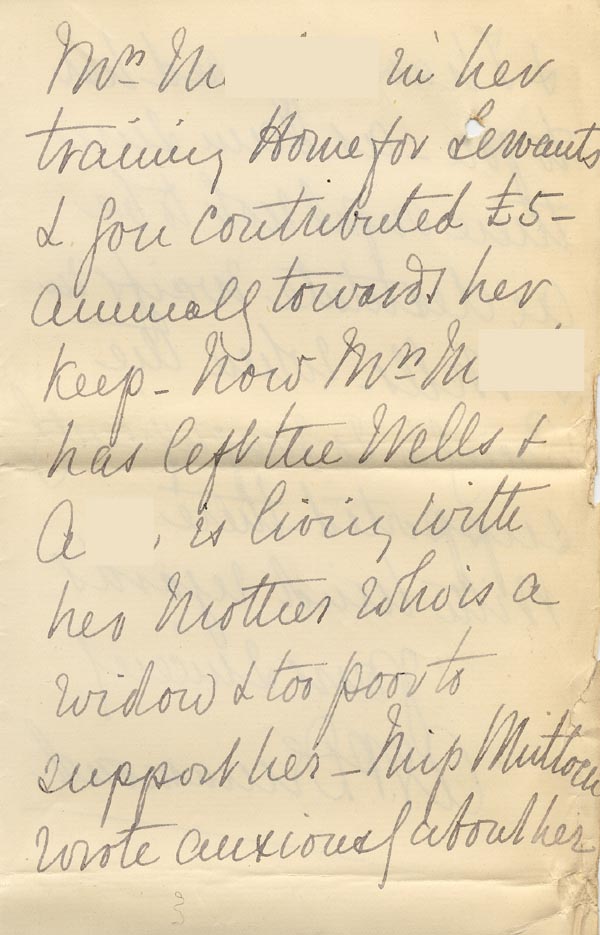 Mrs M in her
training Home for Servants
& you contributed £5–
annually towards her
keep – Now Mrs M
has left the Wells &
A , is living with
her Mother who is a
widow & too poor to
support her – Miss
wrote anxiously about her